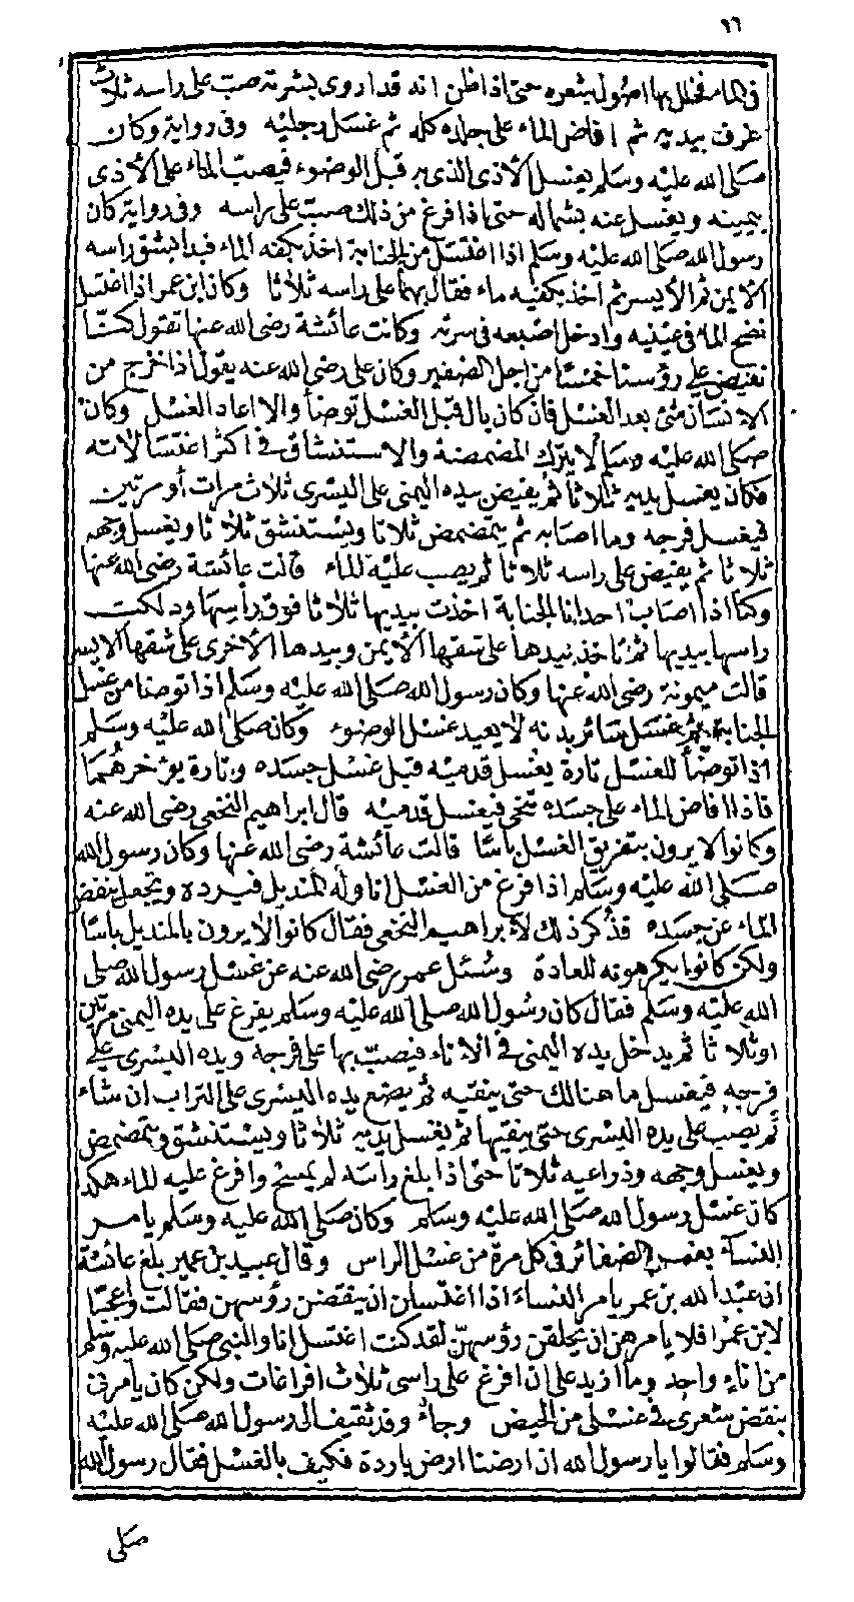 ٩٦
فى الماء فيخلل بها اصول شعره حتى اذا ظن انه قد اروى بشرته صب على راسه ثلاث
غرف بيديه ثم افاض الماء على جلده كله ثم غسل رجليه وفى رواية وكان
صلى الله عليه وسلم يغسل الأذى الذى به قبل الوضوء فيصب الماء على الأذى
بيمينه ويغسل عنه بشماله حتى اذا فرغ من ذلك صب على راسه وفى رواية كان
رسول الله صلى الله عليه وسلم اذا اغتسل من الجنابة اخذ بكفه الماء فبدا بشق راسه
الايمن ثم الأيسر ثم اخذ بكفيه ماء فقال بهما على راسه ثلاثا وكان ابن عمر اذا اغتسل
نضح الماء فى عينيه وادخل اصبعه فى سرته وكانت عائشة رضى الله عنها تقول كنا
نفيض على رؤسنا خمسا من اجل الضفير وكان على رضى الله عنه يقول اذا خرج من
الانسان شئ بعد الغسل فان كان بال قبل الغسل توضأ والا اعاد الغسل وكان
صلى الله عليه وسلم لا يترك المضمضة والاستنشاق فى اكثر اغتسالاته
فكان يغسل يديه ثلاثا ثم يفيض بيده اليمنى على اليسرى ثلاث مرات أو مرتين
فيغسل فرجه وما اصابه ثم يتمضمض ثلاثا ويستنشق ثلاثا ويغسل وجهه
ثلاثا ثم يفيض على راسه ثلاثا ثم يصب عليه الماء قالت عائشة رضى الله عنها
وكنا اذا اصاب احدانا الجنابة اخذت بيديها ثلاثا فوق رأسها ودلكت
راسها بيديها ثم تاخذ بيدها على شقها الأيمن وبيدها الأخرى على شقها الايسر
قالت ميمونة رضى الله عنها وكان رسول الله صلى الله عليه وسلم اذا توضا من غسل
الجنابة ثم غسل سائر بدنه لا يعيد غسل الوضوء وكان صلى الله عليه وسلم
اذا توضأ للغسل تارة يغسل قدميه قبل غسل جسده وتارة يؤخرهما
فاذا افاض الماء على جسده تنحى فيغسل قدميه قال ابراهيم النخعى رضى الله عنه
وكانوا لا يرون بتفريق الغسل باسا قالت عائشة رضى الله عنها وكان رسول الله
صلى الله عليه وسلم اذا فرغ من الغسل اناوله المنديل فيرده ويجعل ينفض
الماء عن جسده فذكر ذلك لأبراهيم النخعى فقال كانوا لا يرون بالمنديل باسا
ولكن كانوا يكرهونه للعادة وسئل عمر رضى الله عنه عن غسل رسول الله صلى
الله عليه وسلم فقال كان رسول الله صلى الله عليه وسلم يفرغ على يده اليمنى مرتين
او ثلاثا ثم يدخل يده اليمنى فى الاناء فيصب بها على فرجه ويده اليسرى على
فرجه فيغسل ما هنالك حتى ينقيه ثم يضع يده اليسرى على التراب ان شاء
ثم يصب على يده اليسرى حتى ينقيها ثم يغسل يديه ثلاثا ويستنشق ويتمضمض
ويغسل وجهه وذراعيه ثلاثا حتى اذا بلغ راسه لم يمسح وافرغ عليه الماء هكذا
كان غسل رسول الله صلى الله عليه وسلم وكان صلى الله عليه وسلم يامر
النساء بغمر الضفائر فى كل مرة من غسل الراس وقال عبيد بن عمير بلغ عائشة
ان عبد الله بن عمر يامر النساء اذا اغتسلن ان ينقضن رؤسهن فقالت واعجبا
لابن عمر افلا يامرهن ان يحلقن رؤسهن لقد كنت اغتسل انا والنبى صلى الله عليه وسلم
من اناء واحد وما ازيد على ان افرغ على راسى ثلاث افراغات ولكن كان يأمرنى
بنقض شعرى فى غسلى من الحيض وجاء وفد ثقيف الى رسول الله صلى الله عليه
وسلم فقالوا يا رسول الله ان ارضنا ارض باردة فكيف بالغسل فقال رسول الله
صلى